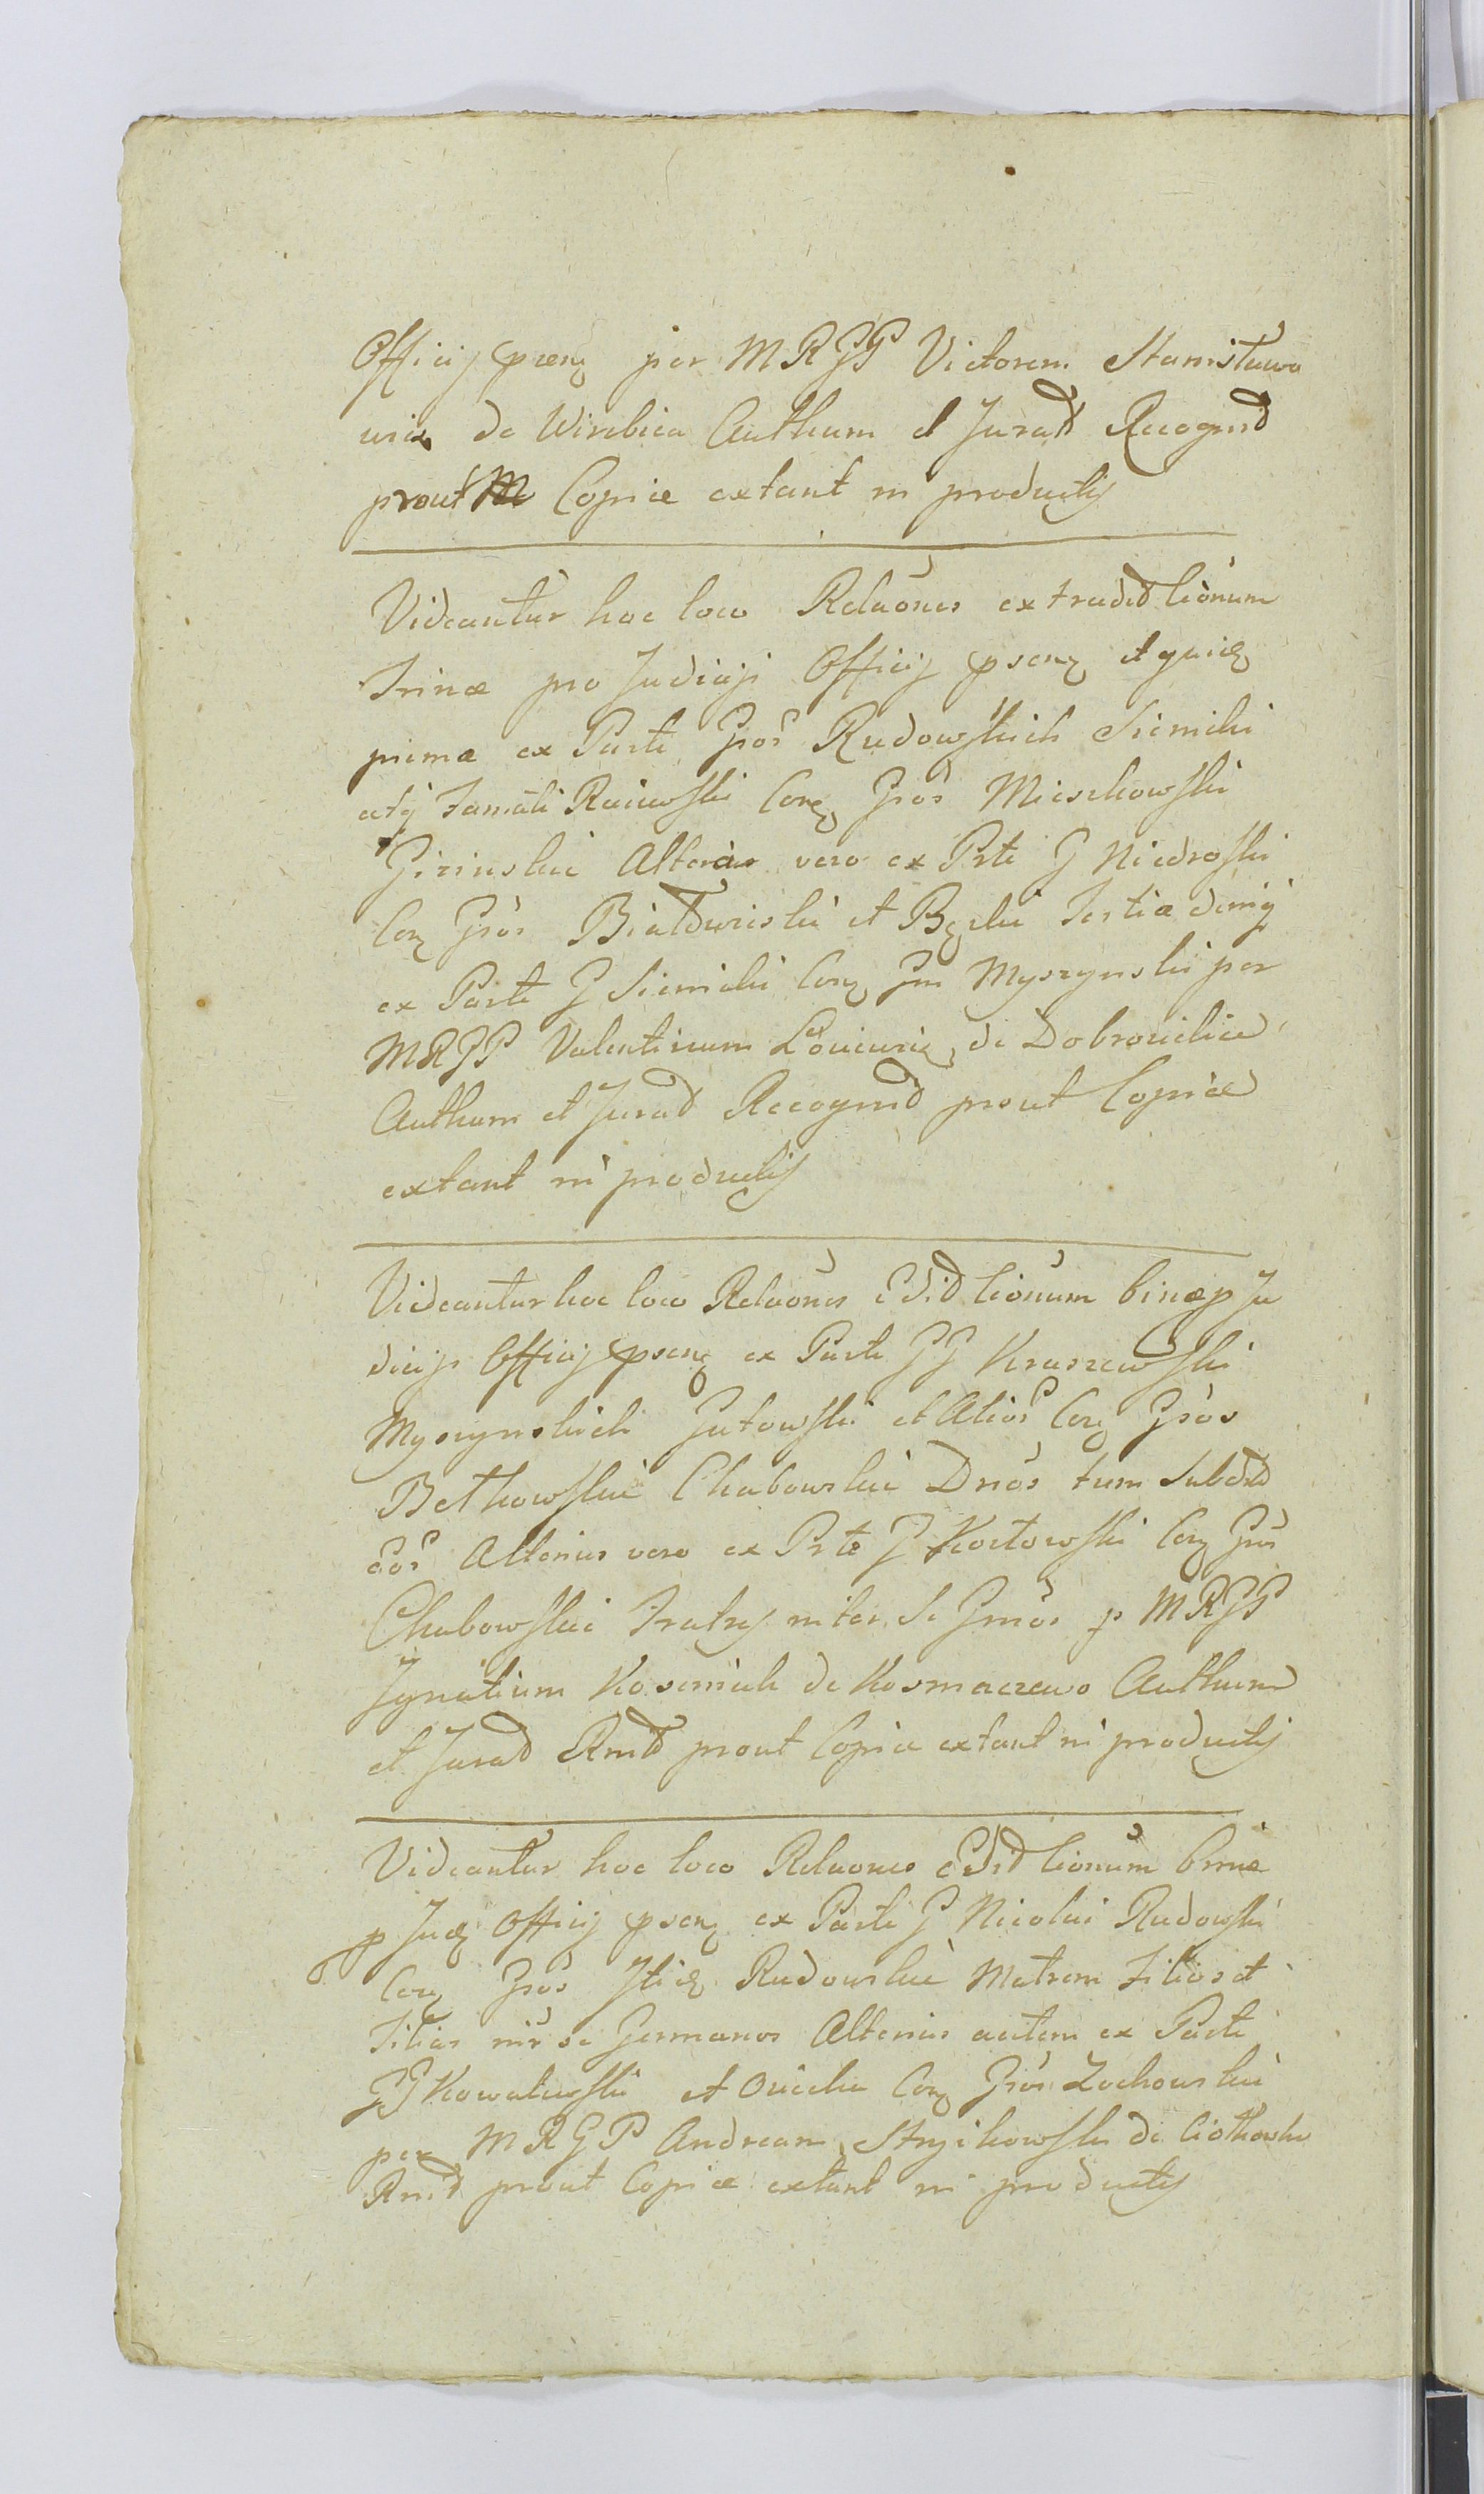 Officij pseng per MRGP Victorem Stanisławo
wicz de Wirzbica Authum et Jurad Recognid
prout Copiæ extant in productis
Videantur hoc loco Relaônes extradid Cionum
Trinæ pro Judicijs Officij pseng
primæ ex Parte Gros Rudowskich Siemichi
atq Famati Raciewski Cong Gros Mieszkowskie
Altenius vero ex Prte G Niedroski
Cong Gros et Bęski Tertiæ deniq
ex Parte G Siemichi Cong Gm Myszynski per
MRGP Valentinum de Dobrosielice
Authum et Jurad Recognid prout Copiæ
extant in productis
Videantur hoc loco Relaônes Edid Cionum binæ p Ju
dicijs Officij pseng ex Parte GG Kraszewski
Myszynskich Gutowski et Alior Cong Gros
Betkowskie Chabowskie Dnos tum Subdd
Eor Altenius vero ex Prte G Kozłowski Cong Gros
Chabowskie Fratres inter Se Gmos p MRGP
Ignatium Kosmich de Kosmaczewo Authum
et Jurad Rnid prout Copiæ extant in productis
Videantur hoc loco Relaones Edid Cionum binæ
p Judg Officij pseng ex Parte G Nicolai Rudowski
Cong Gros Rudowskie Matrem Filios et
Filias inr se Germanos Altenius autem ex Parte
GG Kowalewski et Cong Gros Zochowskie
per MRGP Andream Stryikowski de Ciołkowko
Rnid prout Copiæ extant in productis